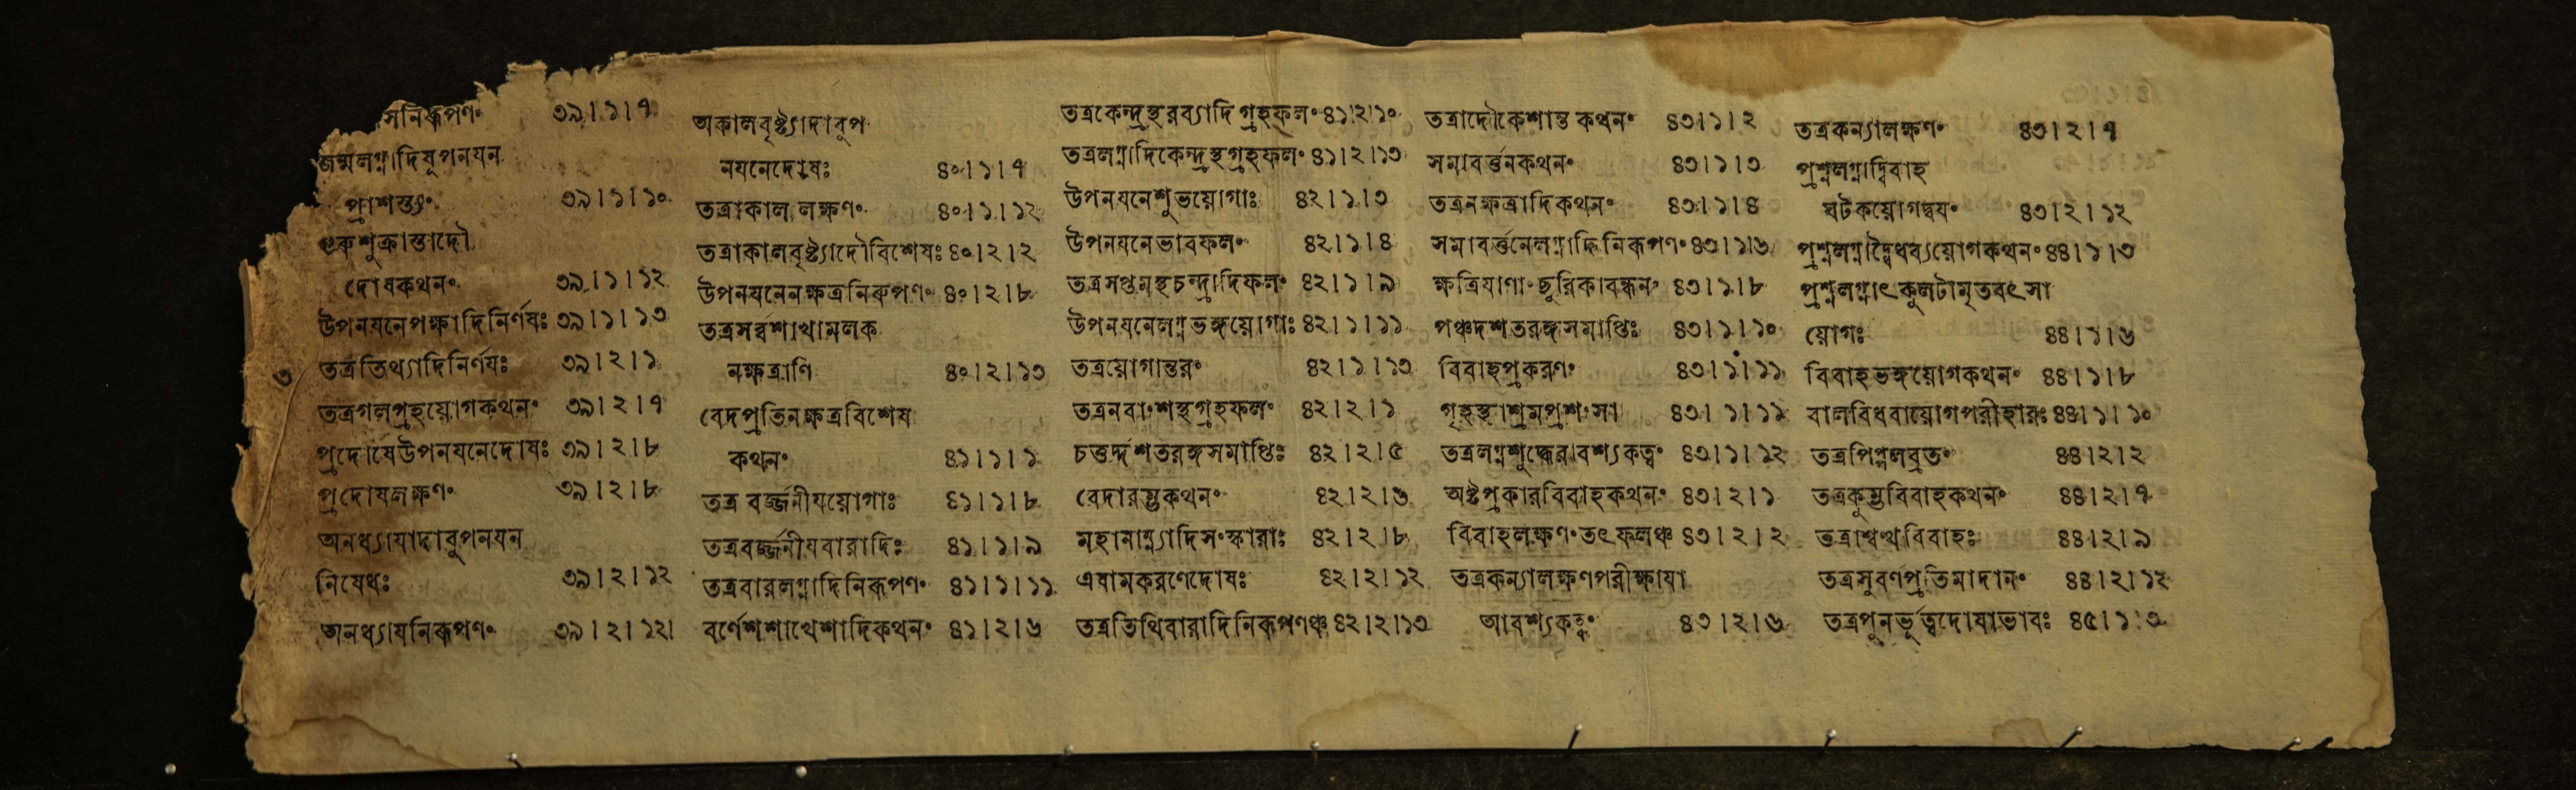 সনিরূপণং ৩৯।১।৭
জন্মলগ্নাদিষূপনযন
প্রাশস্ত্যং ৩৯।১।১০
গুরুশুক্রাস্তাদৌ
দোষকথনং ৩৯।১।১২
উপনযনেপক্ষাদিনির্ণযঃ ৩৯।১।১৩
৩
তত্রতিথ্যাদিনির্ণযঃ ৩৯।২।১
তত্রগলগ্রহযোগকথনং ৩৯।২।৭
প্রদোষেউপনযনেদোষঃ ৩৯।২।৮
প্রদোষলক্ষণং ৩৯।২।৮
অনধ্যাযাদাবুপনযন
নিষেধঃ ৩৯।২।১২
অনধ্যাযনিরূপণং ৩৯।২।১২।
অকালবৃষ্ট্যাদাবুপ
নযনেদোষঃ ৪০।১।৭
তত্রাকাললক্ষণং ৪০।১।১২
তত্রাকালবৃষ্ট্যাদৌবিশেষঃ ৪০।২।২
উপনযনেনক্ষত্রনিরূপণং ৪০।২।৮
তত্রসর্ব্বশাখামলক
নক্ষত্রাণি ৪০।২।১৩
বেদপ্রতিনক্ষত্রবিশেষ
কথনং ৪১।১।১
তত্র বর্জ্জনীযযোগাঃ ৪১।১।৮
তত্রবর্জ্জনীযবারাদিঃ ৪১।১।৯
তত্রবারলগ্নাদিনিরূপণং ৪১।১।১১
বর্ণেশশাখেশাদিকথনং ৪১।২।৬
তত্রকেন্দ্রস্থরব্যাদি গ্রহফলং ৪১।২।১০
তত্রলগ্নাদিকেন্দ্রস্থগ্রহফলং ৪১।২।১৩
উপনযনেশুভযোগাঃ ৪২।১।৩
উপনযনেভাবফলং ৪২।১।৪
তত্রসপ্তমস্থচন্দ্রাদিফলং ৪২।১।৯
উপনযনেলগ্নভঙ্গযোগাঃ ৪২।১।১১
তত্রযোগান্তরং ৪২।১।১৩
তত্রনবাংশস্থগ্রহফলং ৪২।২।১
চত্তর্দ্দশতরঙ্গসমাপ্তিঃ ৪২।২।৫
বেদারম্ভকথনং ৪২।২।৬
মহানাম্ন্যাদিসংস্কারাঃ ৪২।২।৮
এষামকরণেদোষঃ ৪২।২।১২
তত্রতিথিবারাদিনিরূপণঞ্চ ৪২।২।১৩
তত্রাদৌকেশান্ত কথনং ৪৩।১।২
সমাবর্ত্তনকথনং ৪৩।১।৩
তত্রনক্ষত্রাদিকথনং ৪৩।১।৪
সমাবর্ত্তনেলগ্নাদিনিরূপণং ৪৩।১।৬
ক্ষত্রিযাণাং ছূরিকাবন্ধনং ৪৩।১।৮
পঞ্চদশতরঙ্গসমাপ্তিঃ ৪৩।১।১০
বিবাহপ্রকরণং ৪৩।১।১১
গৃহস্থাশ্রমপ্রশংসা ৪৩।১।১১
তত্রলগ্নশুদ্ধেরাবশ্যকত্বং ৪৩।১।১২
অষ্টপ্রকারবিবাহকথনং ৪৩।২।১
বিবাহলক্ষণংতৎফলঞ্চ ৪৩।২।২
তত্রকন্যালক্ষণপরীক্ষাযা
আবশ্যকত্বং ৪৩।২।৬
তত্রকন্যালক্ষণং ৪৩।২।৭
প্রশ্নলগ্নাদ্বিবাহ
ঘটকযোগদ্বযং ৪৩।২।১২
প্রশ্নলগ্নাদ্বৈধব্যযোগকথনং ৪৪।১।৩
প্রশ্নলগ্নাৎকুলটামৃতবৎসা
যোগঃ ৪৪।১।৬
বিবাহভঙ্গযোগকথনং ৪৪।১।৮
বালবিধবাযোগপরীহারঃ ৪৪।১।১০
তত্রপিপ্পলব্রতং ৪৪।২।২
তত্রকুম্ভবিবাহকথনং ৪৪।২।৭
তত্রাশ্বত্থবিবাহঃ ৪৪।২।৯
তত্রসুবর্ণপ্রতিমাদানং ৪৪।২।১২
তত্রপুনর্ভূত্বদোষাভাবঃ ৪৫।১।৩